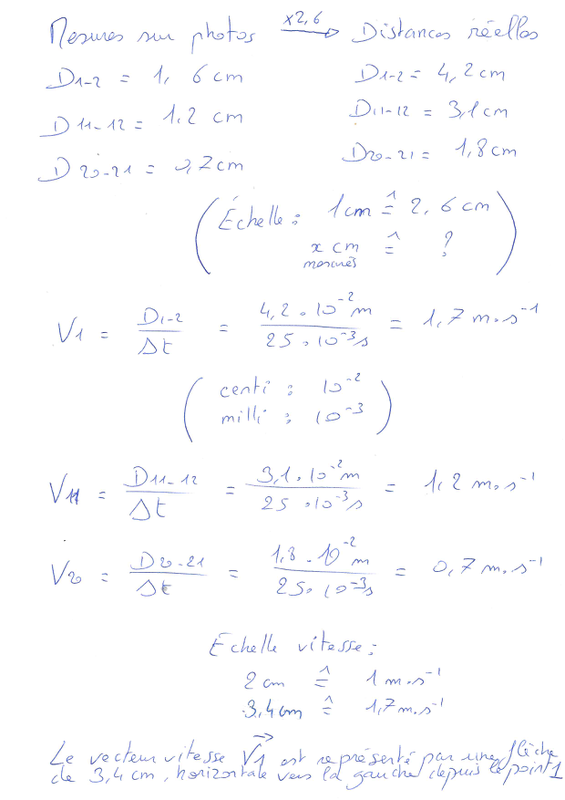 Mesures sur photos ×2,6 → Distances réelles
D1-2 = 1,6 cm D1-2 = 4,2 cm
D11-12 = 1,2 cm D11-12 = 3,1 cm
D20-21 = 0,7 cm D20-21 = 1,8 cm
(Échelle : 1 cm ≙ 2,6 cm
x cm ≙ ?
mesurés)
V1 = D1-2 / Δt = 4,2 . 10⁻² m / 25 . 10⁻³ s = 1,7 m.s⁻¹
(centi : 10⁻²
milli : 10⁻³)
V11 = D11-12 / Δt = 3,1 . 10⁻² m / 25 . 10⁻³ s = 1,2 m.s⁻¹
V20 = D20-21 / Δt = 1,8 . 10⁻² m / 25 . 10⁻³ s = 0,7 m.s⁻¹
Echelle vitesse :
2 cm ≙ 1 m.s⁻¹
3,4 cm ≙ 1,7 m.s⁻¹
Le vecteur vitesse V1→ est représenté par une flèche
de 3,4 cm, horizontale vers la gauche depuis le point 1